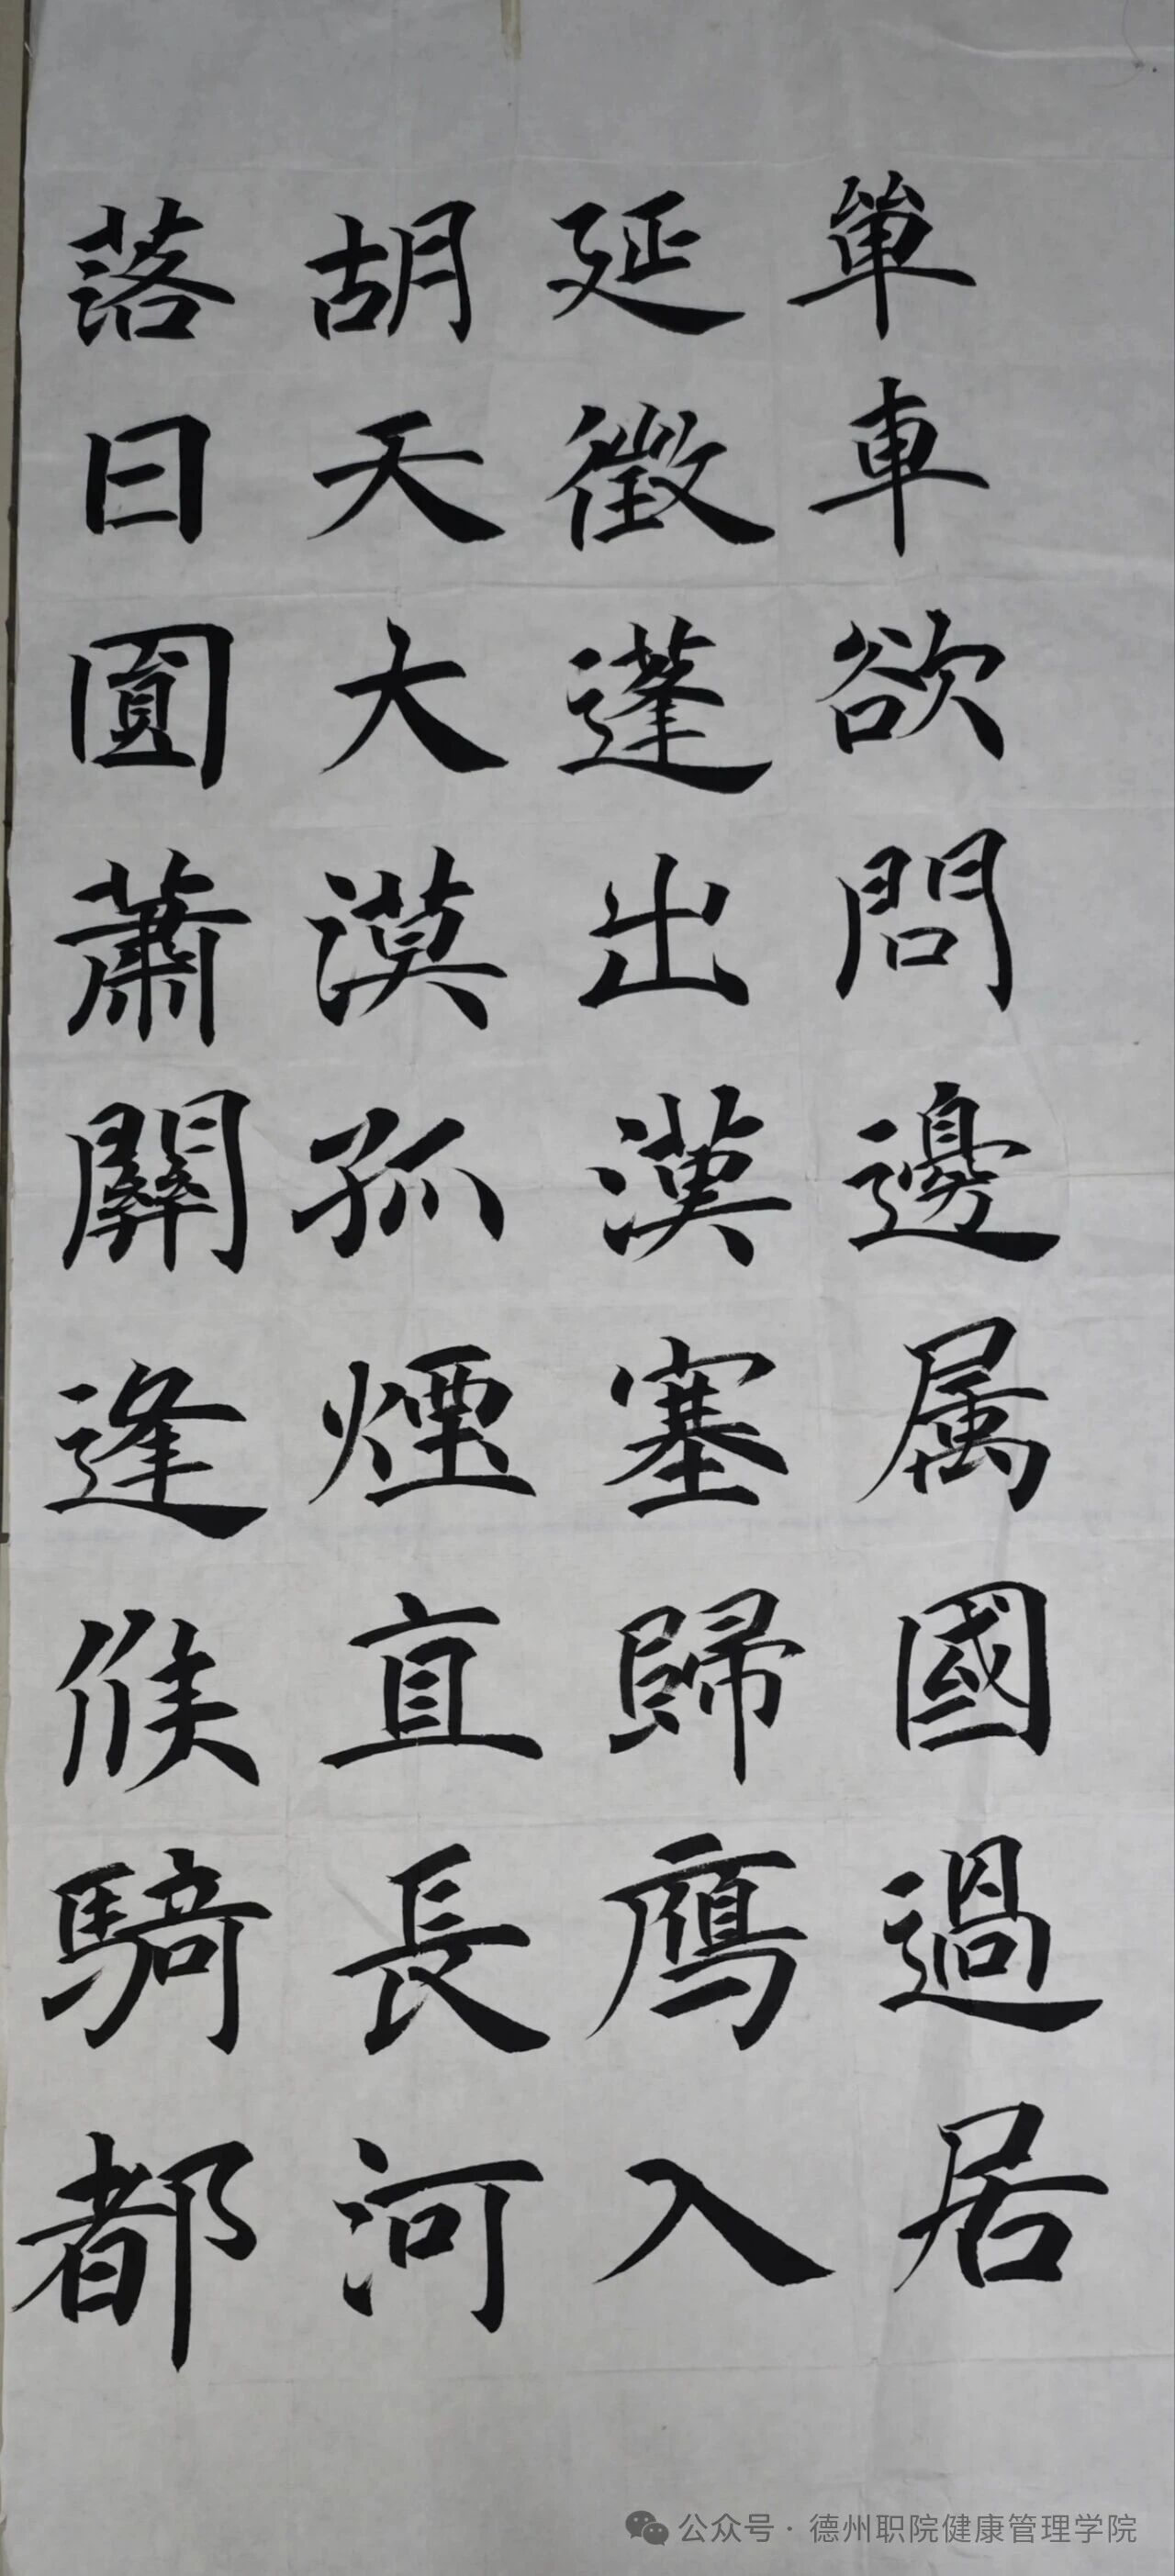 單車欲問邊属國過居
延徵蓬出漢塞歸鴈入
胡天大漠孤煙直長河
落日圓蕭關逢候騎都
公众号·德州职院健康管理学院